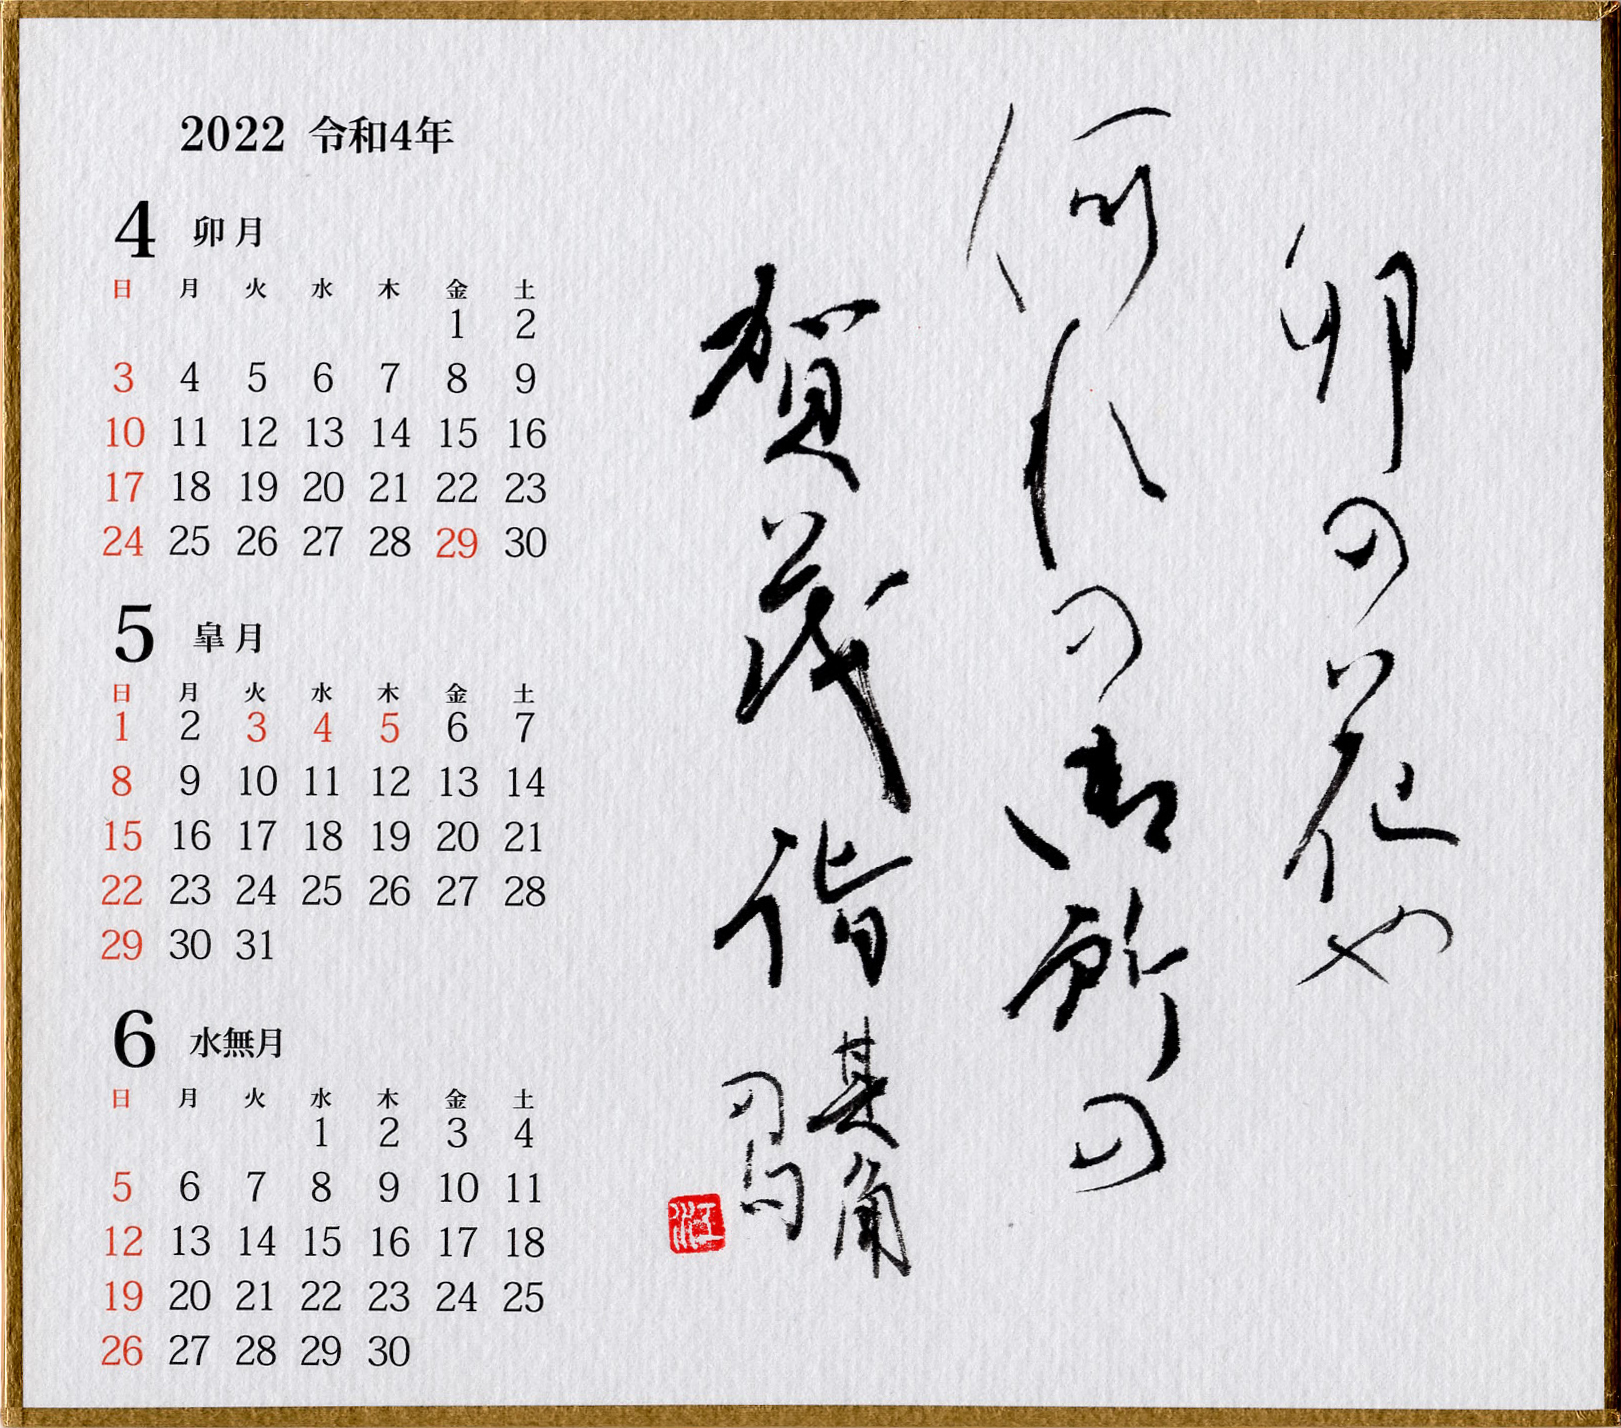 卯の花や
何れの御所の
賀茂詣
其角
の句
江
2022 令和4年
4 卯月
日 月 火 水 木 金 土
1 2
3 4 5 6 7 8 9
10 11 12 13 14 15 16
17 18 19 20 21 22 23
24 25 26 27 28 29 30
5 皐月
日 月 火 水 木 金 土
1 2 3 4 5 6 7
8 9 10 11 12 13 14
15 16 17 18 19 20 21
22 23 24 25 26 27 28
29 30 31
6 水無月
日 月 火 水 木 金 土
1 2 3 4
5 6 7 8 9 10 11
12 13 14 15 16 17 18
19 20 21 22 23 24 25
26 27 28 29 30